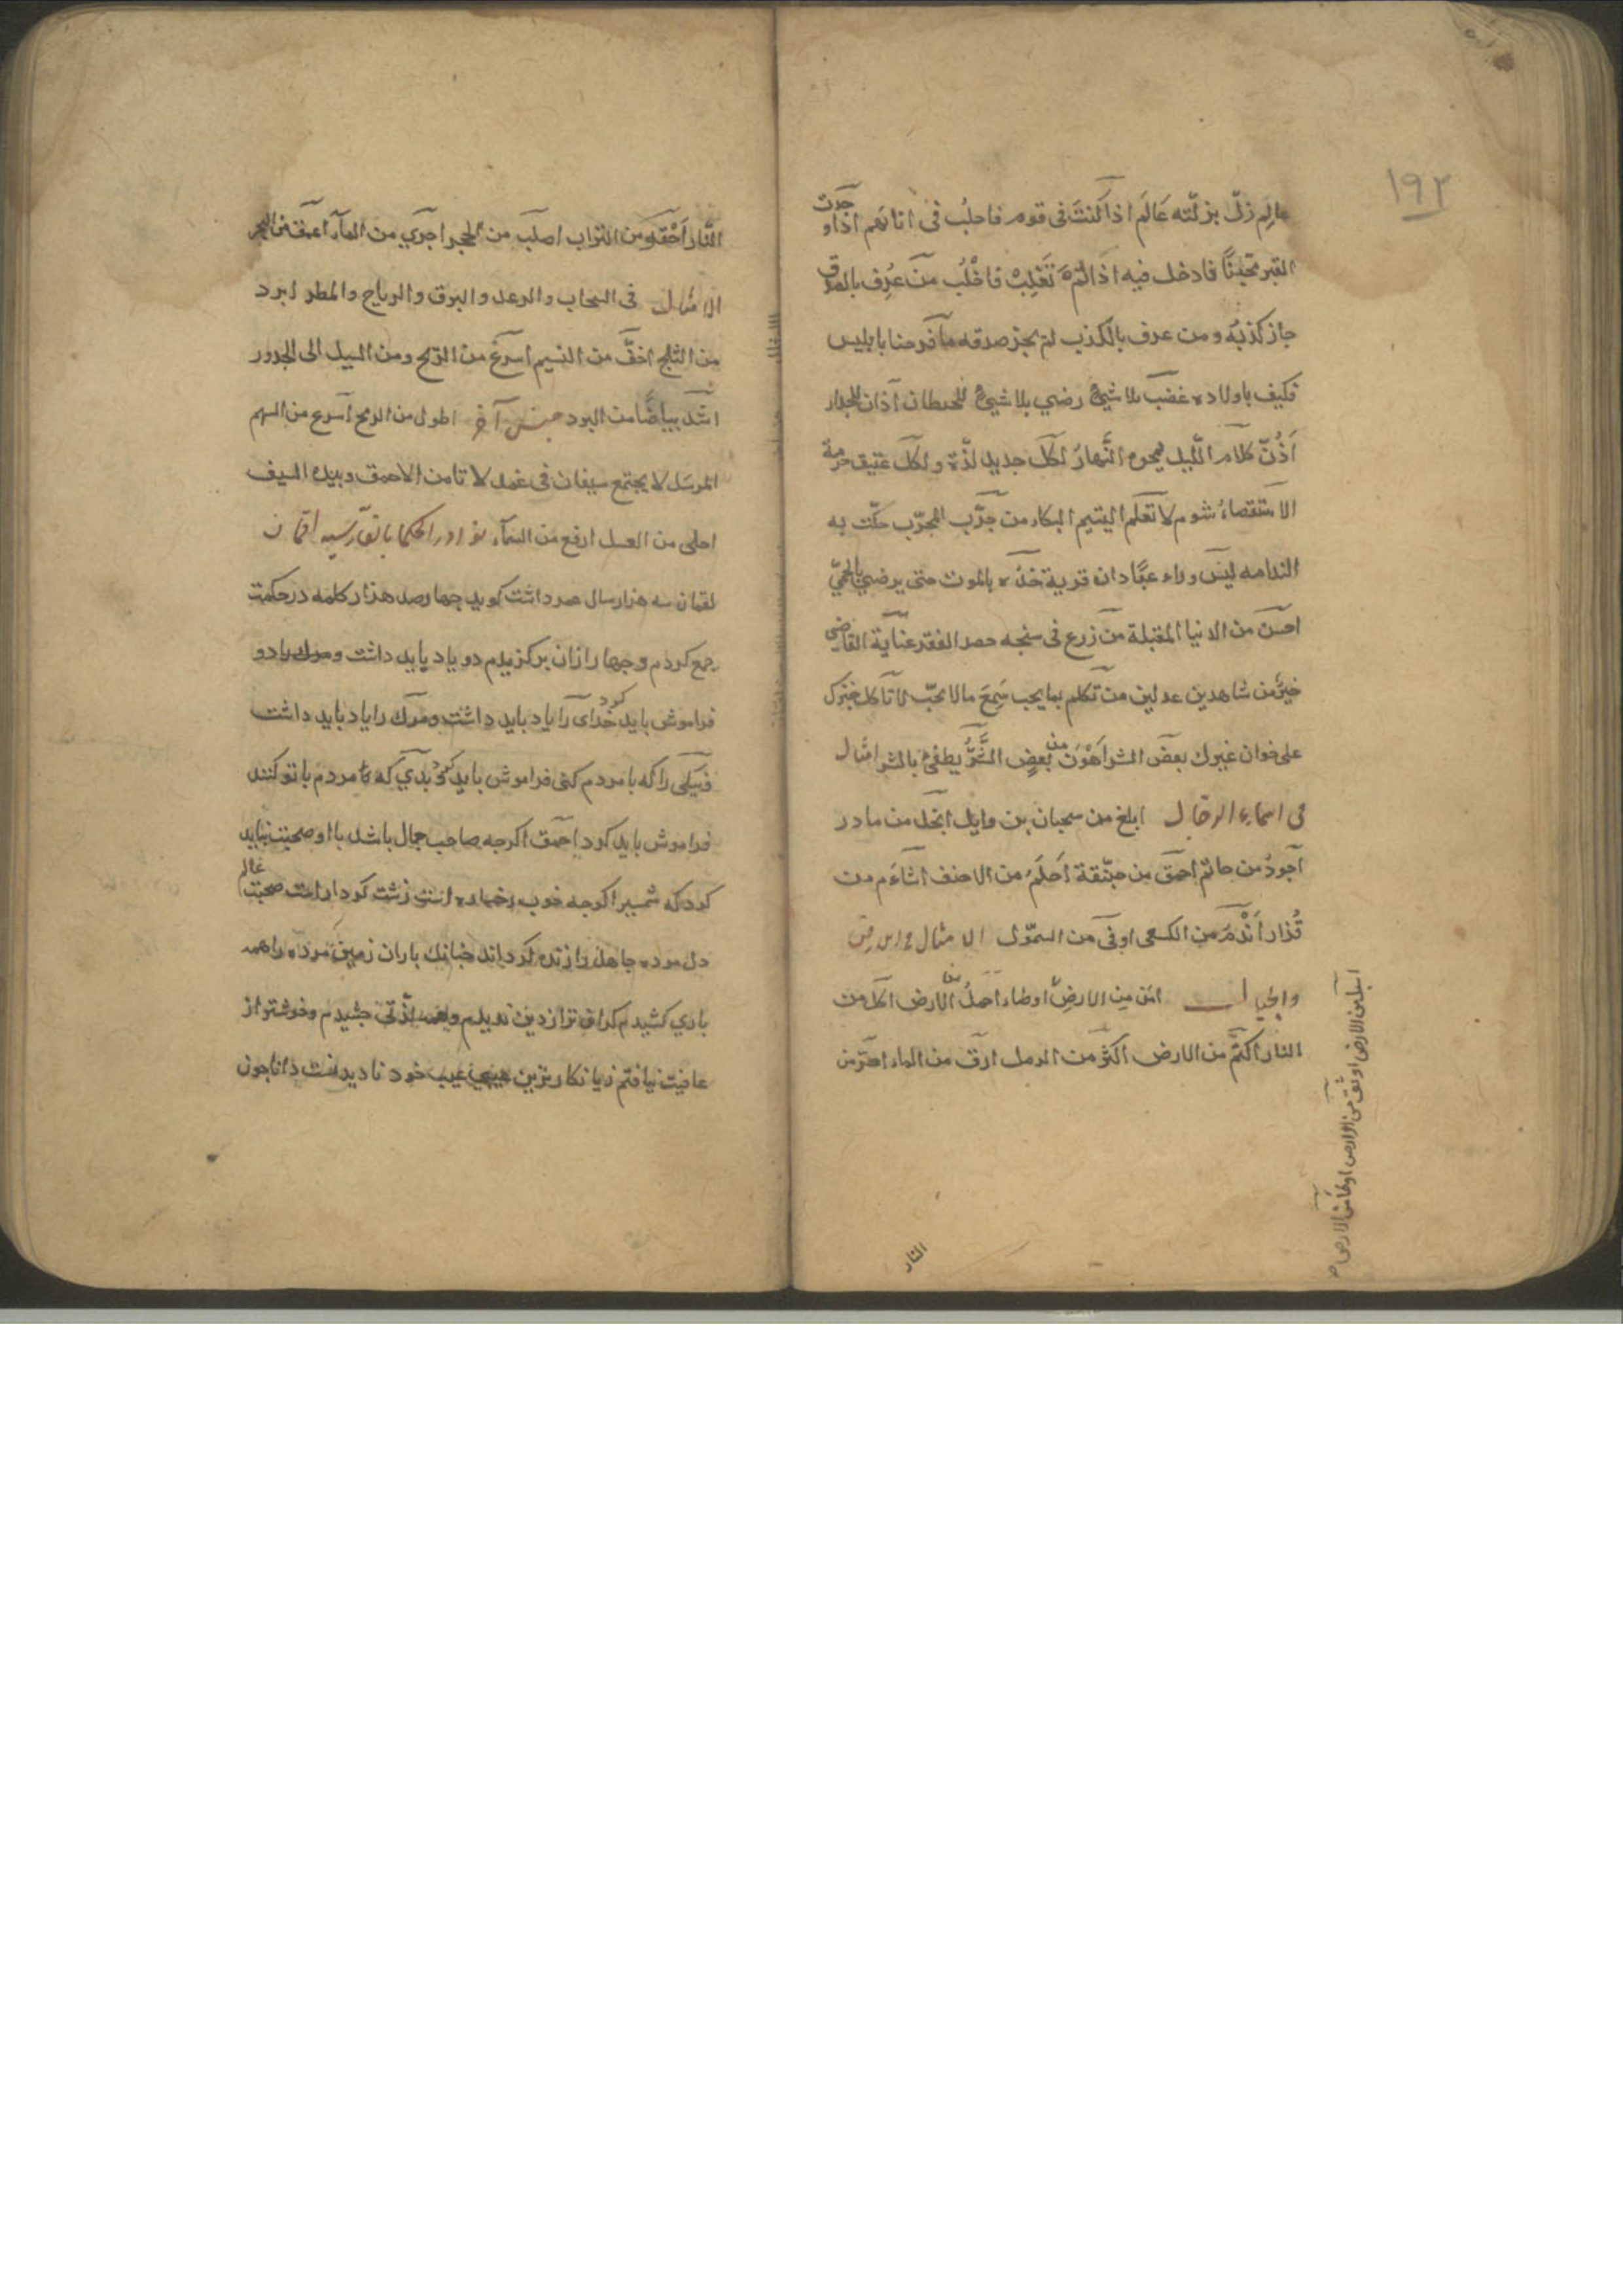 ١٩٢
عالِم زلّ بزلّته عَالَم اذا كنتَ فى قوم فاحلبْ فى انائهم اذا و جدت
القبر مجينًا فادخل فيه اذا لمْ تَغْلِبْ فاخْلُب من عُرِف بالصدق
جاز كذبُه ومن عرف بالكذب لم يجز صدقه ما فرحنا بابليس
فكيف باولاده غضب بلا شيئ رضي بلا شيئ للحيطان آذان للجدار
اُذُنٌ كلام اللّيل يمحوه النَّهارُ لكل جديد لذّة ولكل عتيق حرمة
الاستقصاء شوم لا تعلم اليتيم البكاء من جرّب المجرّب حلّت به
الندامه ليس وراء عبّادان قرية خذه بالموت حتى يرضي بالحمّي
احسن من الدنيا المقبلة من زرع فى سنجه حصد الفقر عناية القاضى
خيرٌ من شاهدين عدلين من تكلم بما يحب سَمِعَ ما لا يحبّ لا تأكل خبزك
على خوان غيرك بعض الشر اَهْوَن من بعضٍ الشَّرُّ يطفئ بالشر امثال
فى اسماء الرجال ابلغ من سحبان بن وايل ابخل من مادر
اجودُ من حاتم احمق من هبنّقة اَحلَمُ من الاحنف اشأَم من
قُذار اَنْدَمُ من الكسعى اوفى من السموّل الامثال فى الارض
والجبال امَن مِن الارضِ اوطاء احملُ من الارض اكل من
النار اكتَم من الارض اكثَر من الرمل ارق من الماء احَرّ من
النار
النَّار اَحْقَر من التراب اصلب من الحجر اجرَي من الماء اعمق من البحر
الامثال فى السحاب والرعد والبرق والرياح والمطر ابرد
من الثلج اخفَّ من النسيم اسرَع من الريح ومن السيل الى الحدور
اشّد بياضًا من البرد جنس آخر اطول من الرمح اسرع من السهم
المرسَل لا يجتمع سيفان فى غمد لا تامن الاحمق وبيده السيف
احلى من العسل ارفع من السمآء نوادر الحكما بالفارسيه لقمان
لقمان سه هزار سال عمر داشت كويد جهار صد هزار كلمه در حكمت
جمع كردم و جهار ازان بركزيدم دو ياد بايد داشت و دو
فراموش بايد كرد خداى را ياد بايد داشت و مرك را ياد بايد داشت
و نيكى را كه با مردم كنى فراموش بايد كرد و بدي كه مردم با تو كنند
فراموش بايد كرد احمق اكرجه صاحب جمال باشد با او صحبت نبايد
كرد كه شمشير اكرجه خوب رخساره است زشت كردار است صحبت عالم
دل مرده جاهل را زنده كرداند جنانك باران زمين مرده را همه
باري كشيدم كران تر از دين نديدم و همه لذّتى جشيدم و خوشتر از
عافيت نيافتم زيانكارترين عيب خود نا ديدنست دانا جون